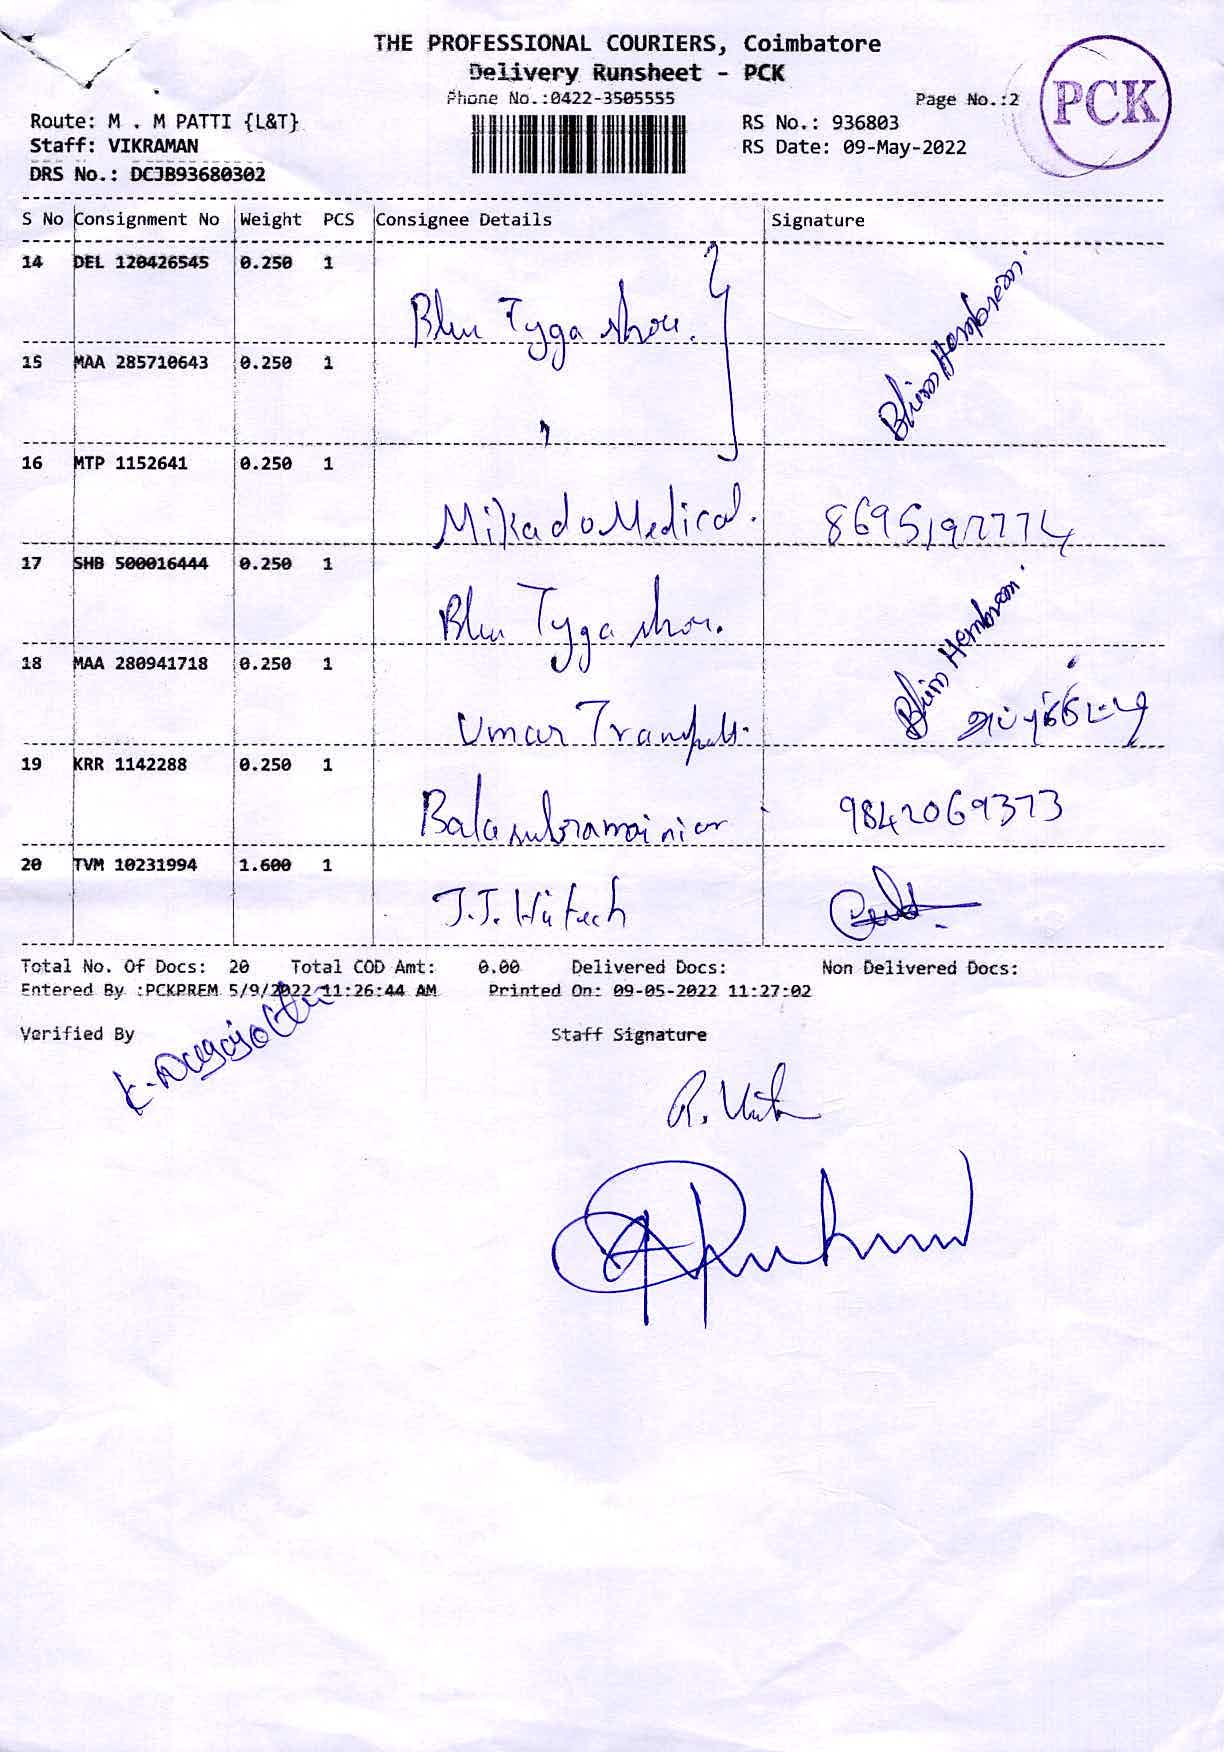 THE PROFESSIONAL COURIERS, Coimbatore
Delivery Runsheet - PCK
Phone No.:0422-3505555
Page No.:2
PCK
Route: M . M PATTI {L&T}
RS No.: 936803
Staff: VIKRAMAN
RS Date: 09-May-2022
DRS No.: DCJB93680302
S No Consignment No Weight PCS Consignee Details Signature
14 DEL 120426545 0.250 1
Blue Tyga shou.
Bhim Hembram
15 MAA 285710643 0.250 1
"
16 MTP 1152641 0.250 1
Mikado Medical.
17 SHB 500016444 0.250 1
Blue Tyga shou.
Bhim Hembram
18 MAA 280941718 0.250 1
Umar
19 KRR 1142288 0.250 1
9842069373
20 TVM 10231994 1.600 1
J.J.
Total No. Of Docs: 20 Total COD Amt: 0.00 Delivered Docs: Non Delivered Docs:
Entered By :PCKPREM 5/9/2022 11:26:44 AM Printed On: 09-05-2022 11:27:02
Verified By Staff Signature